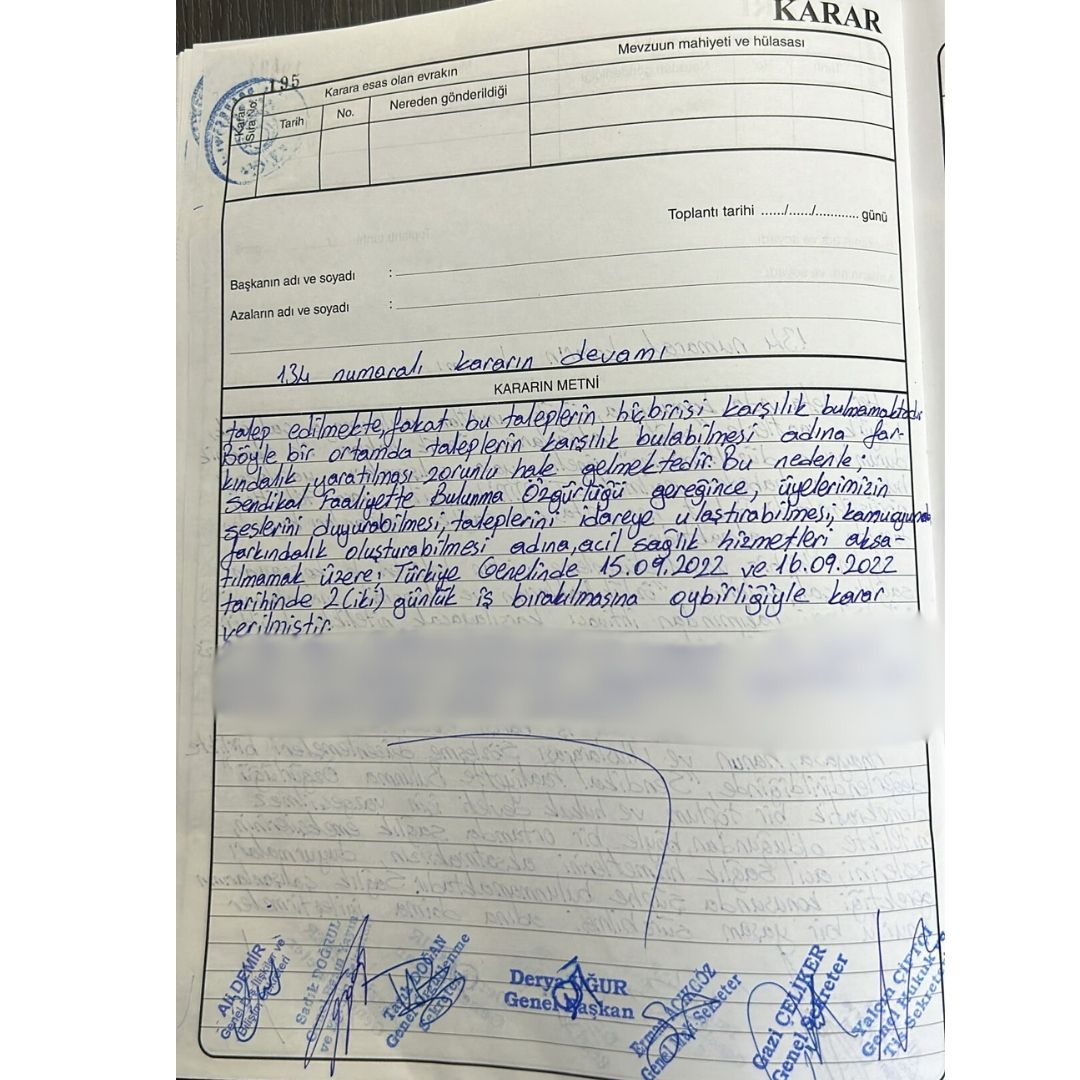 KARAR
195
Karar Sıra No:
Karara esas olan evrakın
Mevzuun mahiyeti ve hülasası
Tarih
No.
Nereden gönderildiği
Toplantı tarihi ....../....../............ günü
Başkanın adı ve soyadı :
Azaların adı ve soyadı :
134 numaralı kararın devamı
KARARIN METNİ
talep edilmekte, fakat bu taleplerin hiçbirisi karşılık bulmamaktadır.
Böyle bir ortamda taleplerin karşılık bulabilmesi adına far-
kındalık yaratılması zorunlu hale gelmektedir. Bu nedenle;
Sendikal Faaliyette Bulunma Özgürlüğü gereğince, üyelerimizin
seslerini duyurabilmesi, taleplerini idareye ulaştırabilmesi, kamuoyunda
farkındalık oluşturabilmesi adına, acil sağlık hizmetleri aksa-
tılmamak üzere; Türkiye Genelinde 15.09.2022 ve 16.09.2022
tarihinde 2 (iki) günlük iş bırakılmasına oybirliğiyle karar
verilmiştir.
Ali DEMİR
Genel Dış İlişkiler ve
Bilişim Sekreteri
Sadık DOĞRUL
Genel Basın Yayın
ve
Tarık DOĞAN
Genel
Sekreteri
Derya UĞUR
Genel Başkan
Erman AÇIKGÖZ
Genel Mali Sekreter
Gazi ÇELİKER
Genel Sekreter
Yalçın ÇİFTÇİ
Genel Hukuk